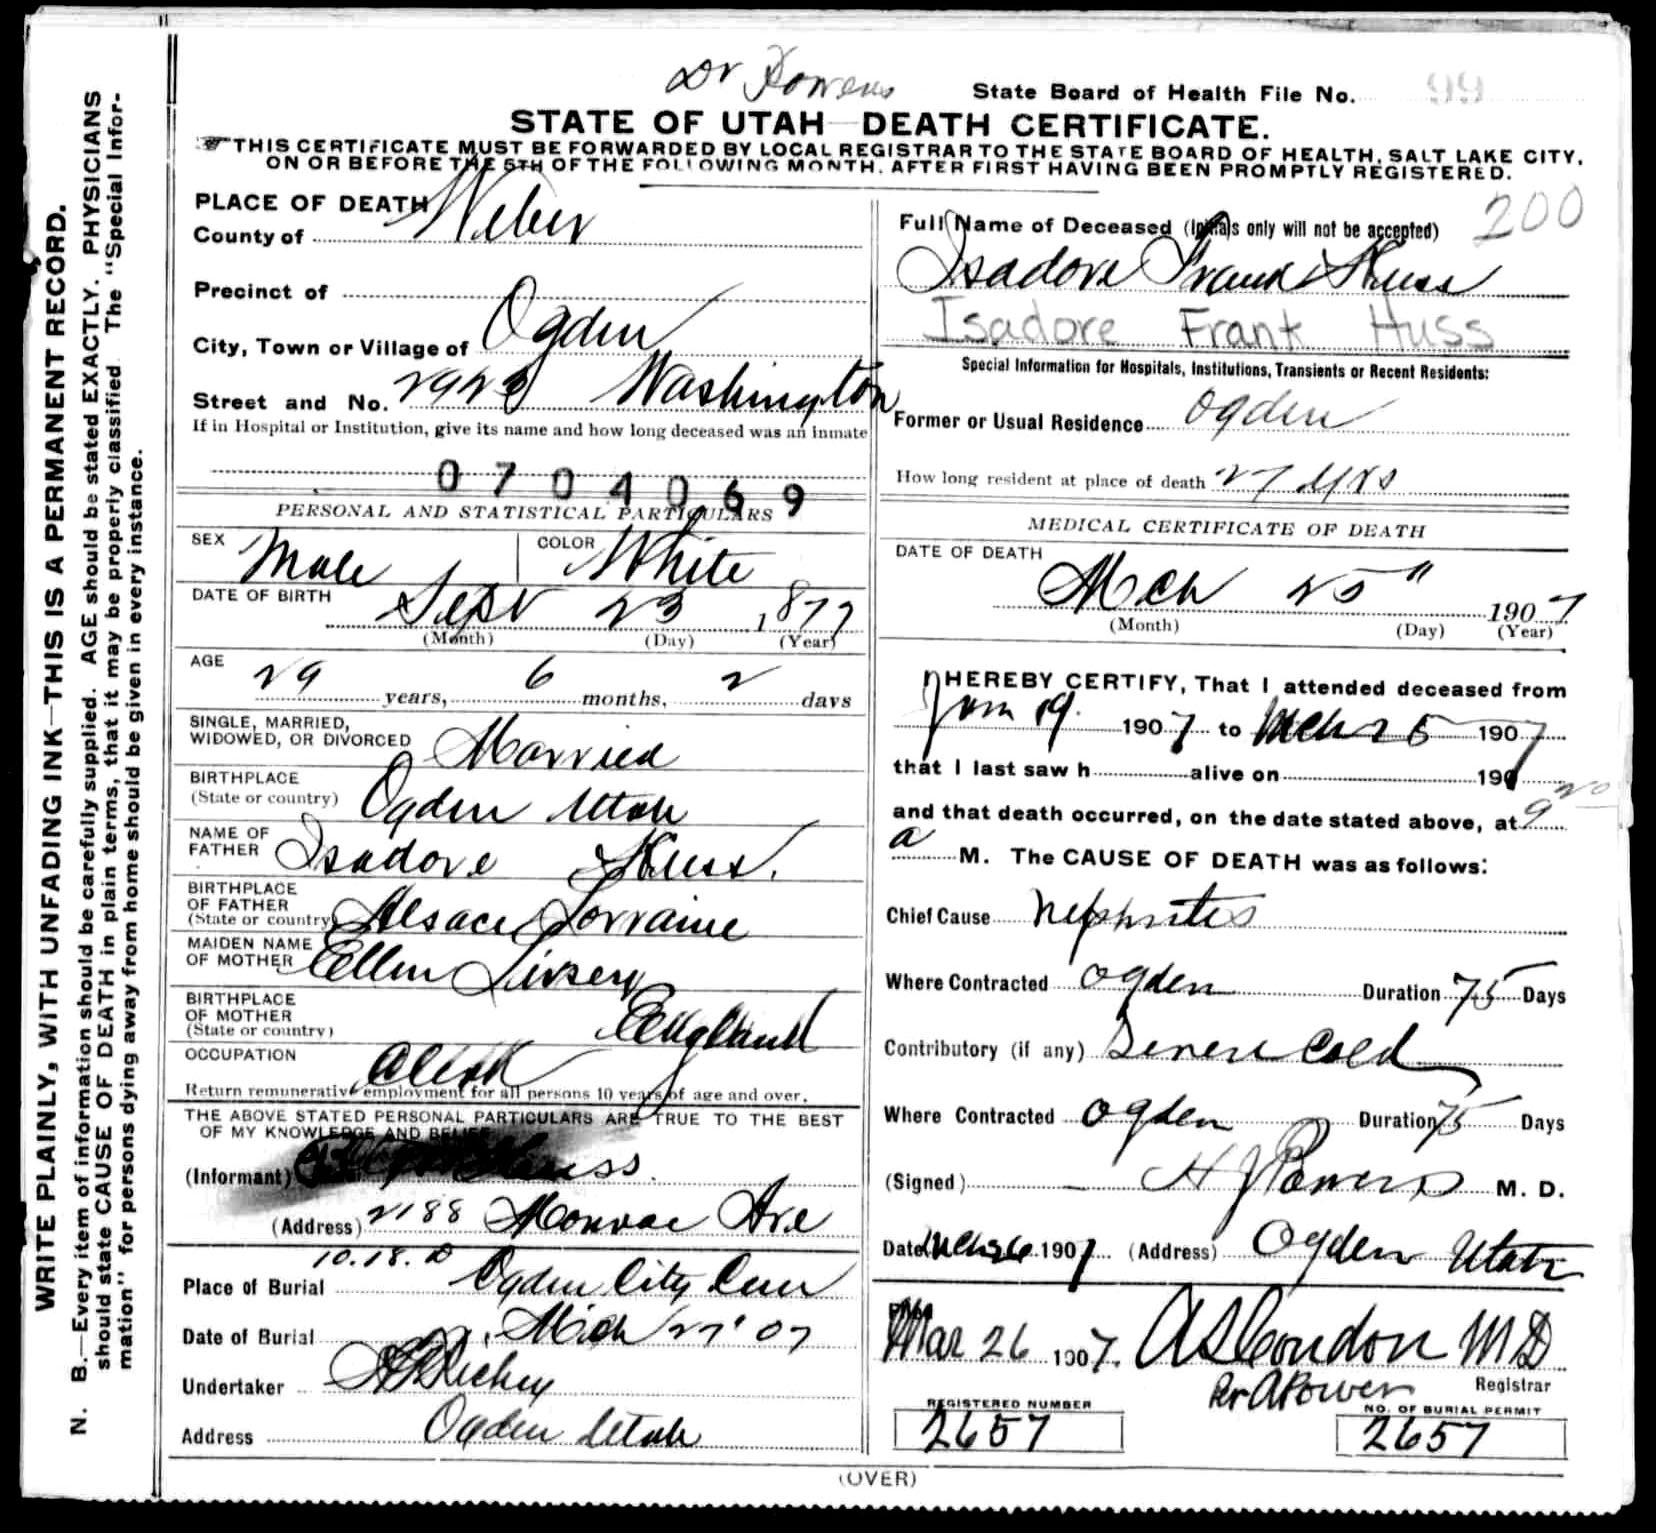 Dr Powers
State Board of Health File No. 99
STATE OF UTAH—DEATH CERTIFICATE.
THIS CERTIFICATE MUST BE FORWARDED BY LOCAL REGISTRAR TO THE STATE BOARD OF HEALTH, SALT LAKE CITY,
ON OR BEFORE THE 5TH OF THE FOLLOWING MONTH, AFTER FIRST HAVING BEEN PROMPTLY REGISTERED.
WRITE PLAINLY, WITH UNFADING INK—THIS IS A PERMANENT RECORD.
N. B.—Every item of information should be carefully supplied. AGE should be stated EXACTLY. PHYSICIANS
should state CAUSE OF DEATH in plain terms, that it may be properly classified. The "Special Infor-
mation" for persons dying away from home should be given in every instance.
PLACE OF DEATH
County of Weber
Precinct of
City, Town or Village of Ogden
Street and No. 2923 Washington
If in Hospital or Institution, give its name and how long deceased was an inmate
0704069
PERSONAL AND STATISTICAL PARTICULARS
SEX Male COLOR White
DATE OF BIRTH Sept 23 1877
(Month) (Day) (Year)
AGE 29 years, 6 months, 2 days
SINGLE, MARRIED,
WIDOWED, OR DIVORCED Married
BIRTHPLACE
(State or country) Ogden Utah
NAME OF
FATHER Isadore Huss.
BIRTHPLACE
OF FATHER
(State or country) Alsace Lorraine
MAIDEN NAME
OF MOTHER Ellen Livsey
BIRTHPLACE
OF MOTHER
(State or country) England
OCCUPATION Clerk
Return remunerative employment for all persons 10 years of age and over.
THE ABOVE STATED PERSONAL PARTICULARS ARE TRUE TO THE BEST
OF MY KNOWLEDGE AND BELIEF
(Informant) Huss.
(Address) 2188 Monroe Ave
10.18.D
Place of Burial Ogden City Cem
Date of Burial Mch 27' 07
Undertaker Richey
Address Ogden Utah
200
Full Name of Deceased (Initials only will not be accepted)
Isadore Frank Huss
Isadore Frank Huss
Special Information for Hospitals, Institutions, Transients or Recent Residents:
Former or Usual Residence Ogden
How long resident at place of death 27 yrs
MEDICAL CERTIFICATE OF DEATH
DATE OF DEATH
Mch 25" 1907
(Month) (Day) (Year)
I HEREBY CERTIFY, That I attended deceased from
Jan 19 1907 to Mch 25 1907
that I last saw h alive on 190
and that death occurred, on the date stated above, at 9 20
a M. The CAUSE OF DEATH was as follows:
Chief Cause Nephritis
Where Contracted Ogden Duration 75 Days
Contributory (if any) Severe Cold
Where Contracted Ogden Duration 75 Days
(Signed) H J Powers M. D.
Date Mch 26 1907 (Address) Ogden Utah
Filed
Mar 26 1907. A S Condon M D
Per A Power Registrar
REGISTERED NUMBER
2657
NO. OF BURIAL PERMIT
2657
(OVER)